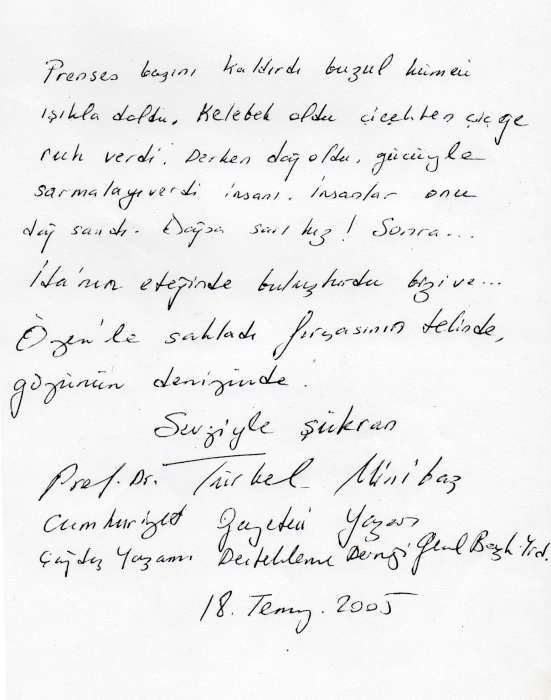 Prenses başını kaldırdı buzul kümesi
ışıkla doldu. Kelebek oldu çiçekten çiçeğe
ruh verdi. Derken dağ oldu, gücüyle
sarmalayıverdi insanı. İnsanlar onu
dağ sandı. Oysa sarı kız! Sonra...
İda'nın eteğinde buluşturdu bizi ve...
Özen'le sakladı fırçasının telinde,
gözünün denizinde.
Sevgiyle şükran
Prof. Dr. Türkel Minibaş
Cumhuriyet Gazetesi Yazarı
Çağdaş Yaşamı Destekleme Derneği Genel Başk. Yrd.
18. Temmuz. 2005